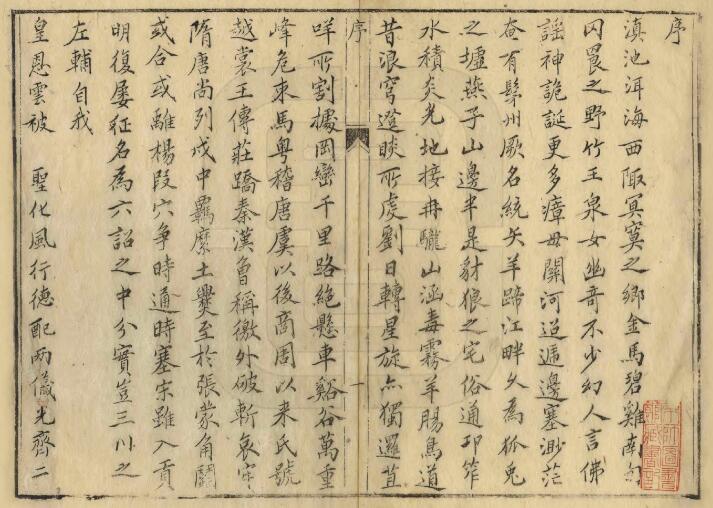 序
滇池洱海西陬冥寞之鄉金馬碧雞南
冈罠之野竹王泉女幽奇不少幻人言佛
謡神詭誕更多瘴母關河迢遞邊塞渺茫
奄有髳州厥名統矢羊蹄江畔久為狐兎
之墟燕子山邊半是豺狼之宅俗通邛笮
水積炎光地接冉駹山涵毒霧羊腸鳥道
昔浪穹蹬睒所虔劉日轉星旋六獨邏苴
序
一
咩所割據岡巒千里路絕懸車谿谷萬重
峰危來馬粤稽唐虞以後商周以来氏號
越裳王傳莊蹻秦漢曾稱徼外破斬哀牢
隋唐尚列戎中羈縻土爨至於張蒙角鬭
或合或離楊段穴争時通時塞宋雖入貢
明復屡征名為六詔之中分實豈三川之
左輔自我
皇恩雲被 聖化風行德配兩儀光齊二